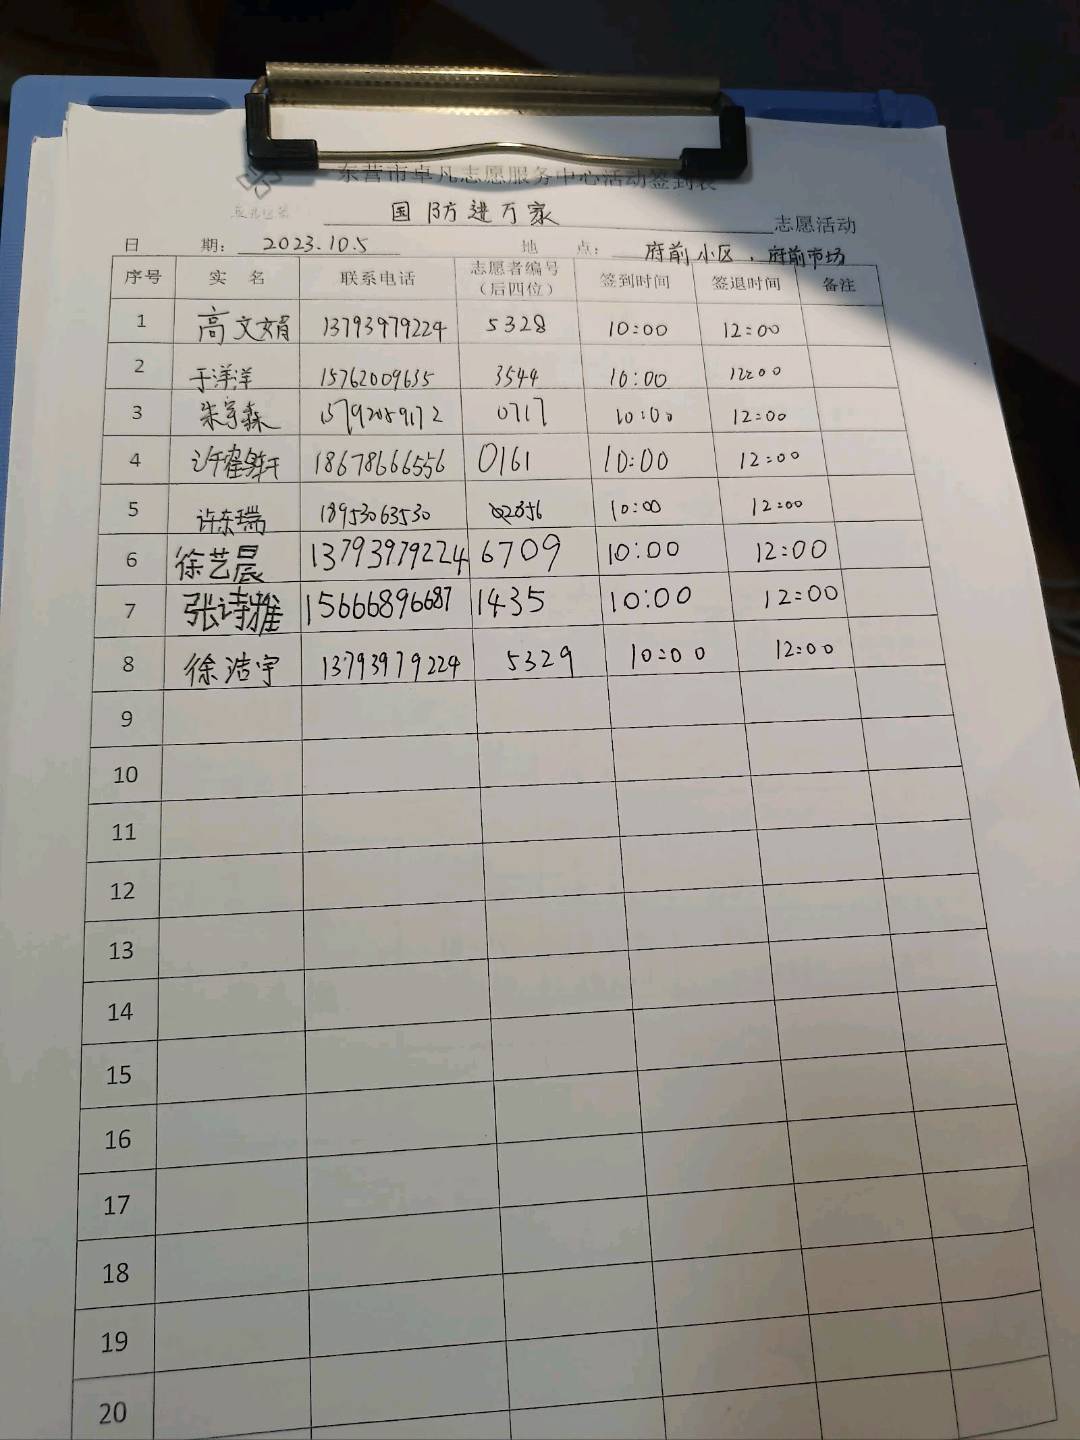 东营市卓凡志愿服务中心活动签到表
国防进万家 志愿活动
日 期: 2023.10.5 地 点: 府前小区、府前市场
序号 实 名 联系电话 志愿者编号(后四位) 签到时间 签退时间 备注
1 高文娟 13793979224 5328 10:00 12:00
2 于洋洋 15762009635 3544 10:00 12:00
3 朱宇森 13792089172 0717 10:00 12:00
4 许 18678666556 0161 10:00 12:00
5 许东瑞 18953063530 10:00 12:00
6 徐艺晨 13793979224 6709 10:00 12:00
7 张诗雅 15666896687 1435 10:00 12:00
8 徐浩宇 13793979224 5329 10:00 12:00
9
10
11
12
13
14
15
16
17
18
19
20